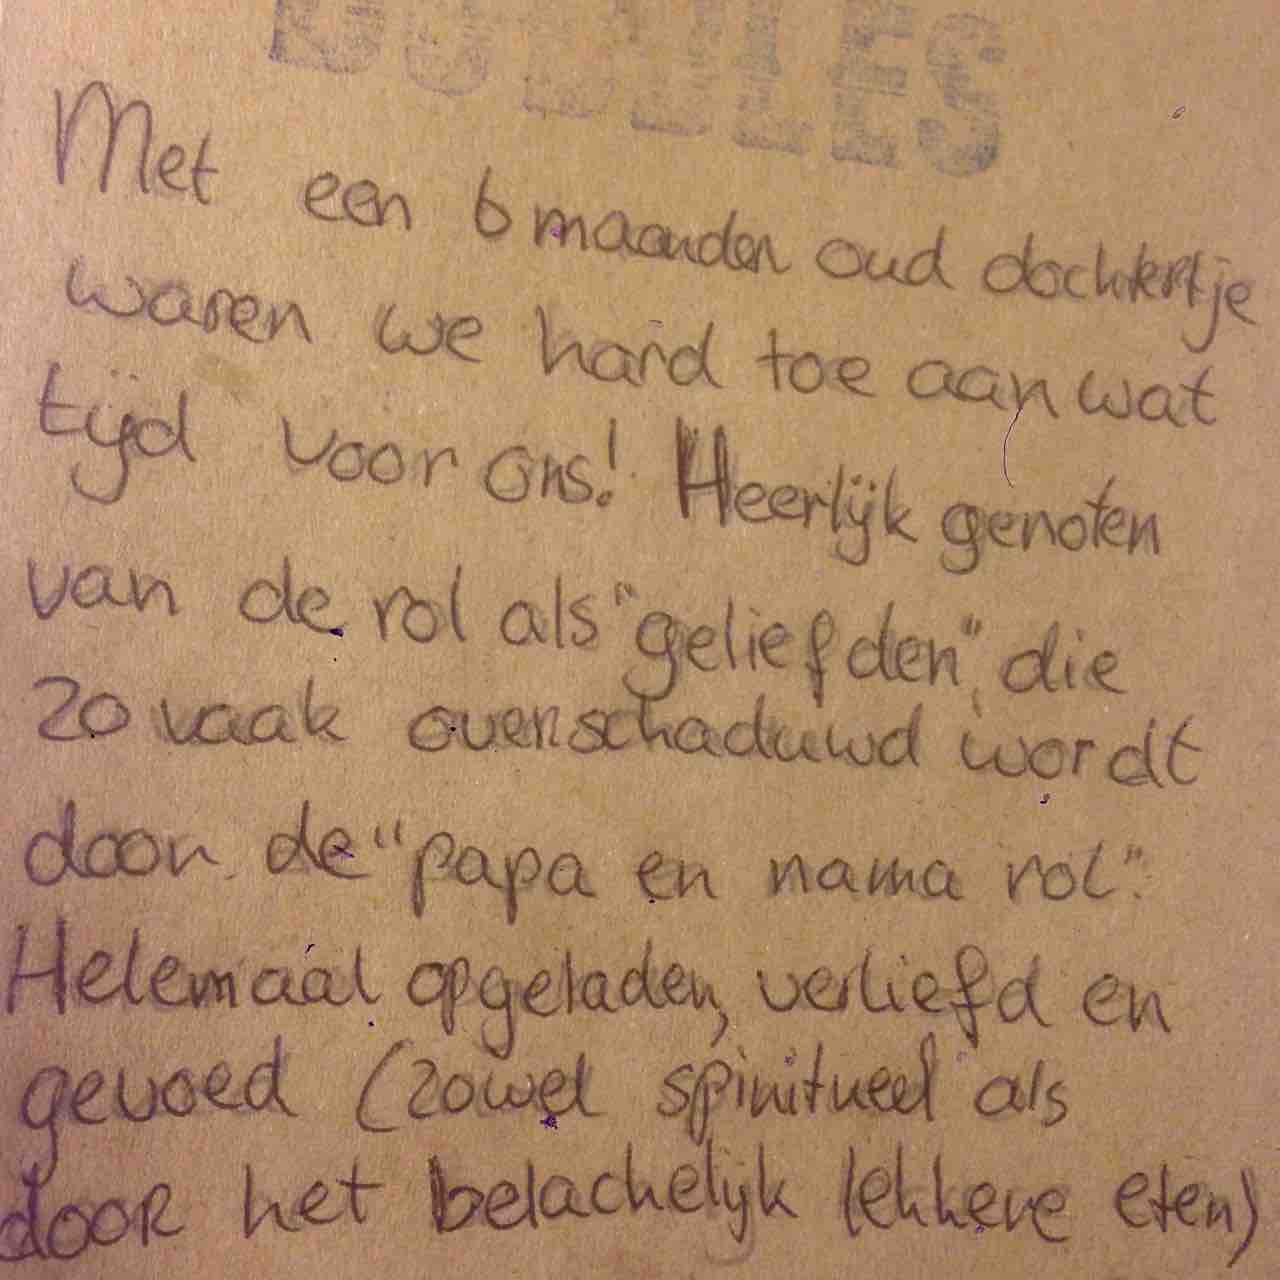 Met een 6 maanden oud dochtertje
waren we hard toe aan wat
tijd voor ons! Heerlijk genoten
van de rol als "geliefden", die
zo vaak overschaduwd wordt
door de "papa en mama rol".
Helemaal opgeladen, verliefd en
gevoed (zowel spiritueel als
door het belachelijk lekkere eten)